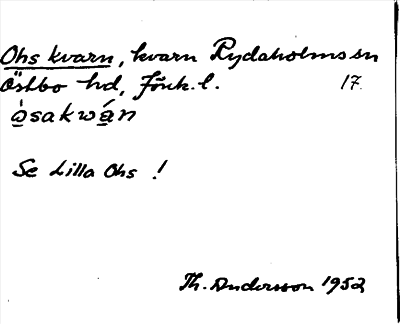 Ohs kvarn, kvarn Rydaholms sn
Östbo hd, Jönk. l. 17.
ò̱sakwá̱n
Se Lilla Ohs !
Th. Andersson 1952